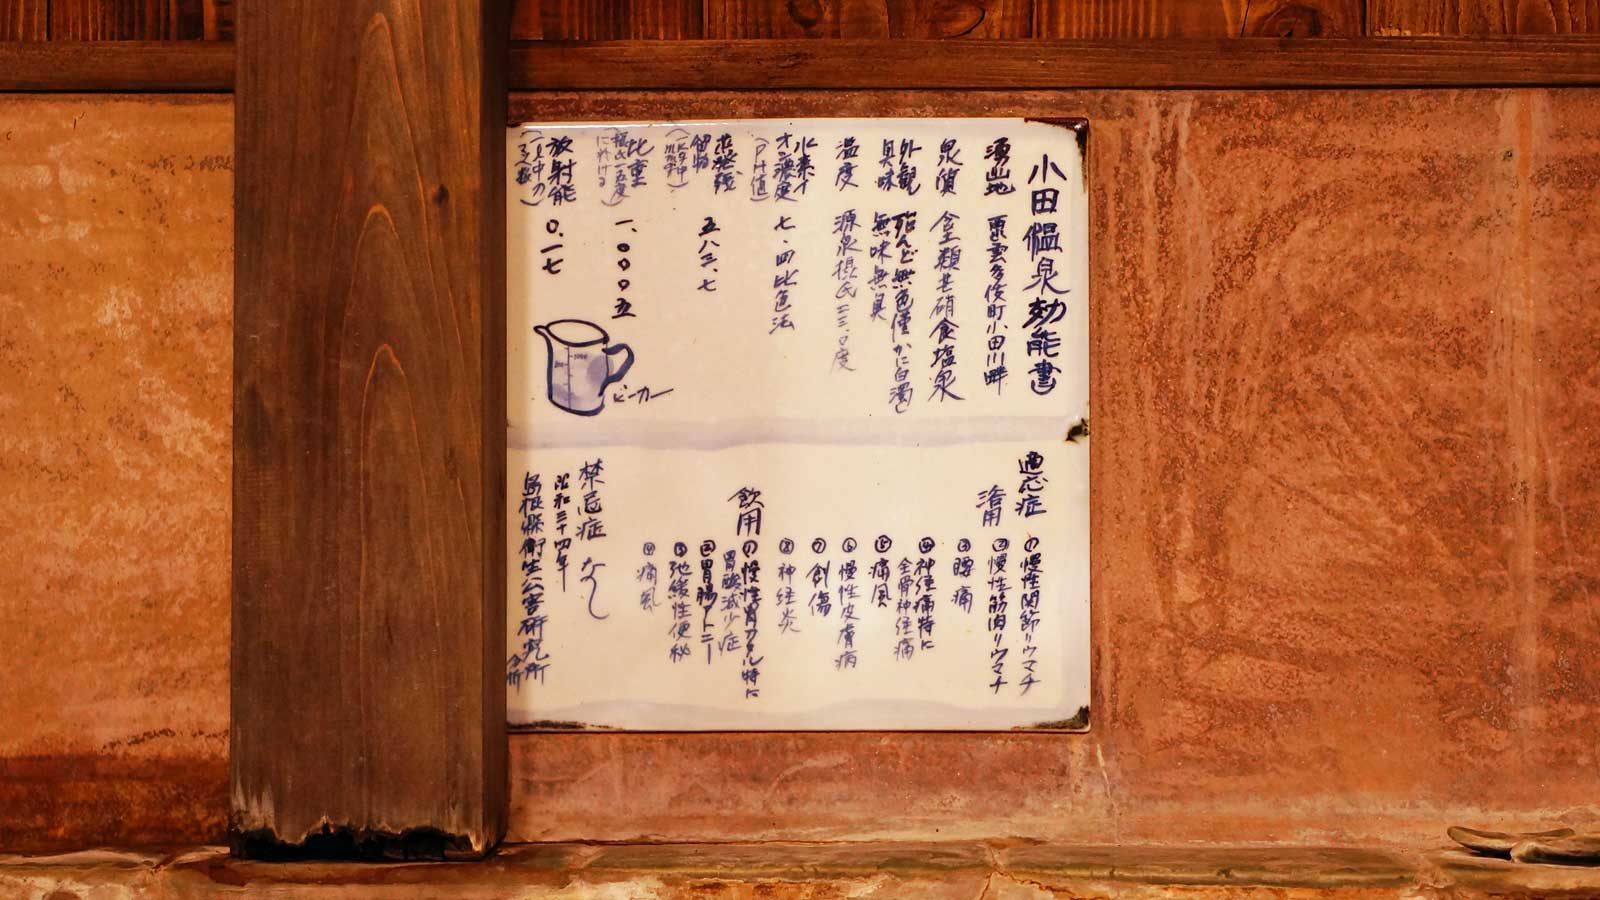 小田温泉効能書
湧出地 東雲多伎町小田川畔
泉質 含土類芒硝食塩泉
外観 殆んど無色僅かに白濁し
臭味 無味無臭
温度 源泉摂氏二三.0度
水素イ
オン濃度 七.四比色法
(PH値)
蒸発残
留物 五八三.七
比重 一.000五
(摂氏一五度
に於ける)
放射能 0.一七
(一l中
ビーカー
適応症
浴用 ①慢性関節リウマチ
②慢性筋肉リウマチ
③腰痛
④神経痛特に
坐骨神経痛
⑤痛風
⑥慢性皮膚病
⑦創傷
⑧神経炎
飲用 ①慢性胃カタル特に
胃酸減少症
②胃腸アトニー
③弛緩性便秘
④痛風
禁忌症 なし
昭和三十四年
島根県衛生公害研究所
分析